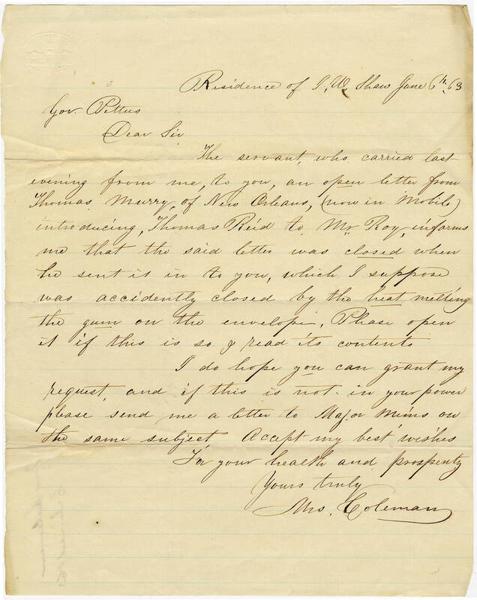 Residence of J. W. Shaw June 6th, 63
Gov. Pettus
Dear Sir
The servant, who carried last
evening from me, to you, an open letter from
Thomas Murry, of New Orleans, (now in Mobile)
introducing, Thomas Reid to Mr Roy, informs
me that the said letter was closed when
he sent it in to you, which I suppose
was accidently closed by the heat melting
the gum on the envelope. Please open
it if this is so & read its contents
I do hope you can grant my
request, and if this is not in your power
please send me a letter to Major Mims on
the same subject. Accept my best wishes
For your health and prosperity
Yours truly
Mrs. Coleman